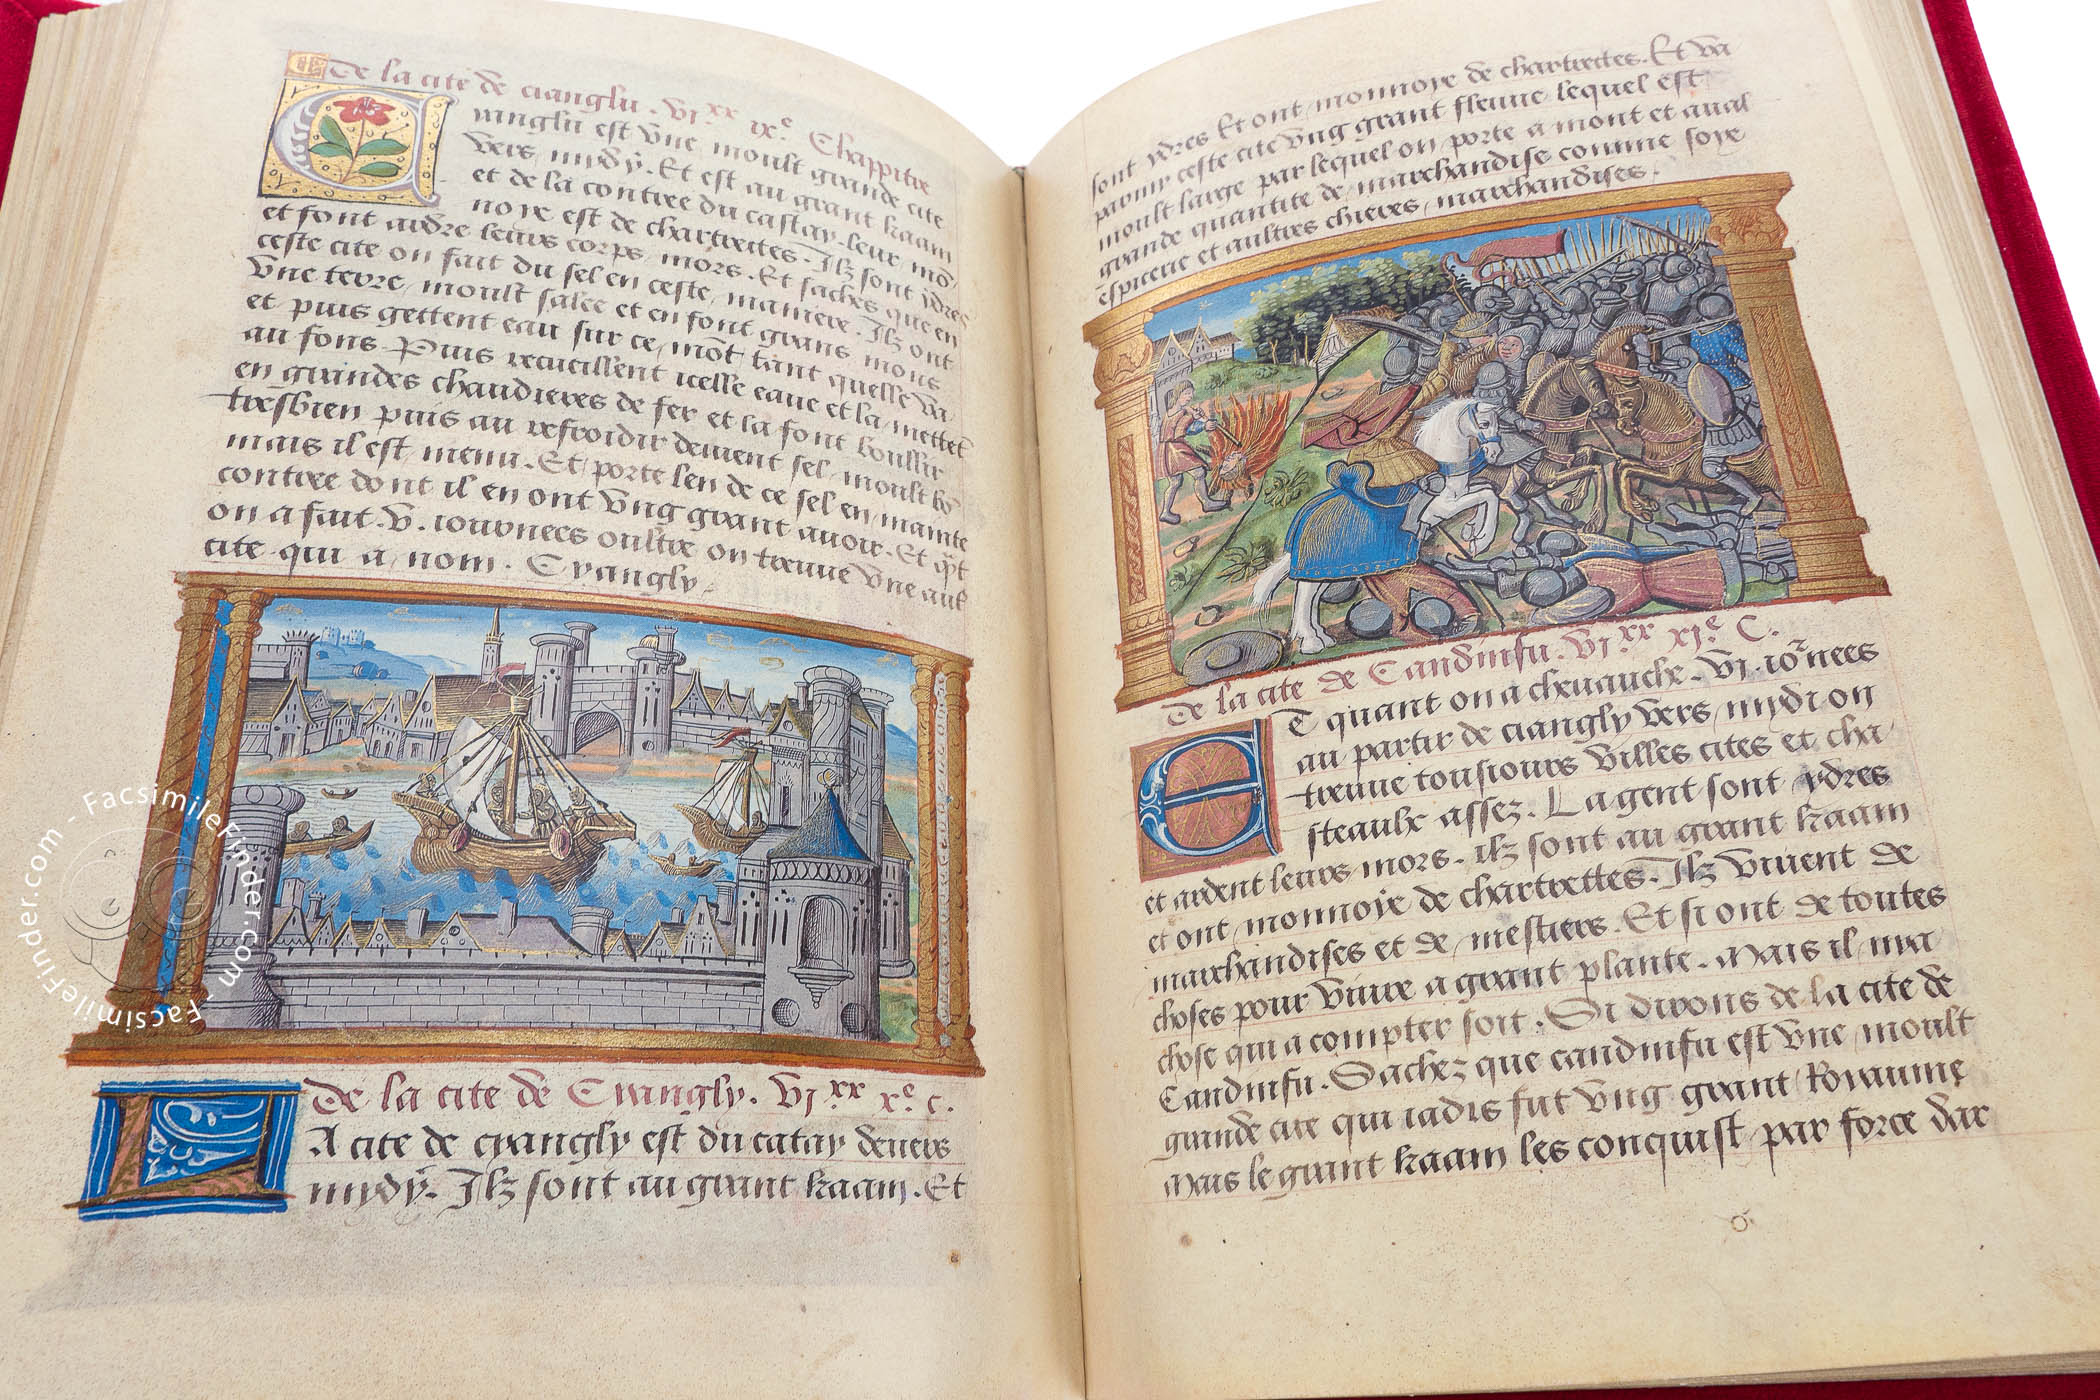 De la cite de cianglu. vi.xx ix.e Chappitre
Cianglu est vne moult grande cite
vers mydy. Et est au grant kaam
et de la contree du castay. leur mo
noye est de chartrettes. Ilz sont ydres
et font ardre leurs corps mors. Et saches que en
ceste cite on fait du sel en ceste maniere. Ilz ont
vne terre moult salee et en font grans mons
et puis gettent eau sur ce mont tant quelle va
au fons. Puis recueillent icelle eaue et la mettent
en grandes chaudieres de fer et la font boullir
tresbien puis au refroidir deuient sel moult bo
mais il est menu. Et porte len de ce sel en mainte
contree dont il en ont vng grant auoir. Et qt
on a fait .v. iournees oultre on treuue vne aut
cite qui a nom. Cyangly.
De la cite de Cyangly. vi.xx x.e c.
LA cite de cyangly est du catay deuers
mydy. Ilz sont au grant kaam. Et
sont ydres Et ont monnoye de chartrettes. Et va
parmy ceste cite vng grant fleuue lequel est
moult large par lequel on porte a mont et aual
grande quantite de marchandise comme soye
espicerie et aultres chieres marchandises.
De la cite de Candinfu. vi.xx xi.e C.
ET quant on a cheuauche .vi. iornees
au partir de ciangly vers mydi on
treuue tousiours villes cites et cha
steaulx assez. La gent sont ydres
et ardent leurs mors. ilz sont au grant kaam
et ont monnoye de chartrettes. Ilz viuent de
marchandises et de mestiers. Et si ont de toutes
choses pour viure a grant plante. Mais il nya
chose qui a compter soit. Si dirons de la cite de
Candinfu. Sachez que candinfu est vne moult
grande cite qui iadis fut vng grant Royaume
mais le grant kaam les conquist par force dar
FacsimileFinder.com - FacsimileFinder.com - FacsimileFinder.com